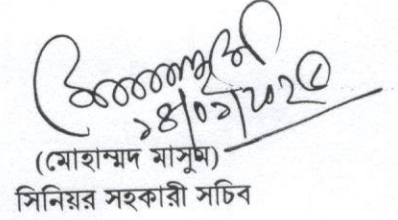 ১৪/০১/২০২৫
(মোহাম্মদ মাসুম)
সিনিয়র সহকারী সচিব